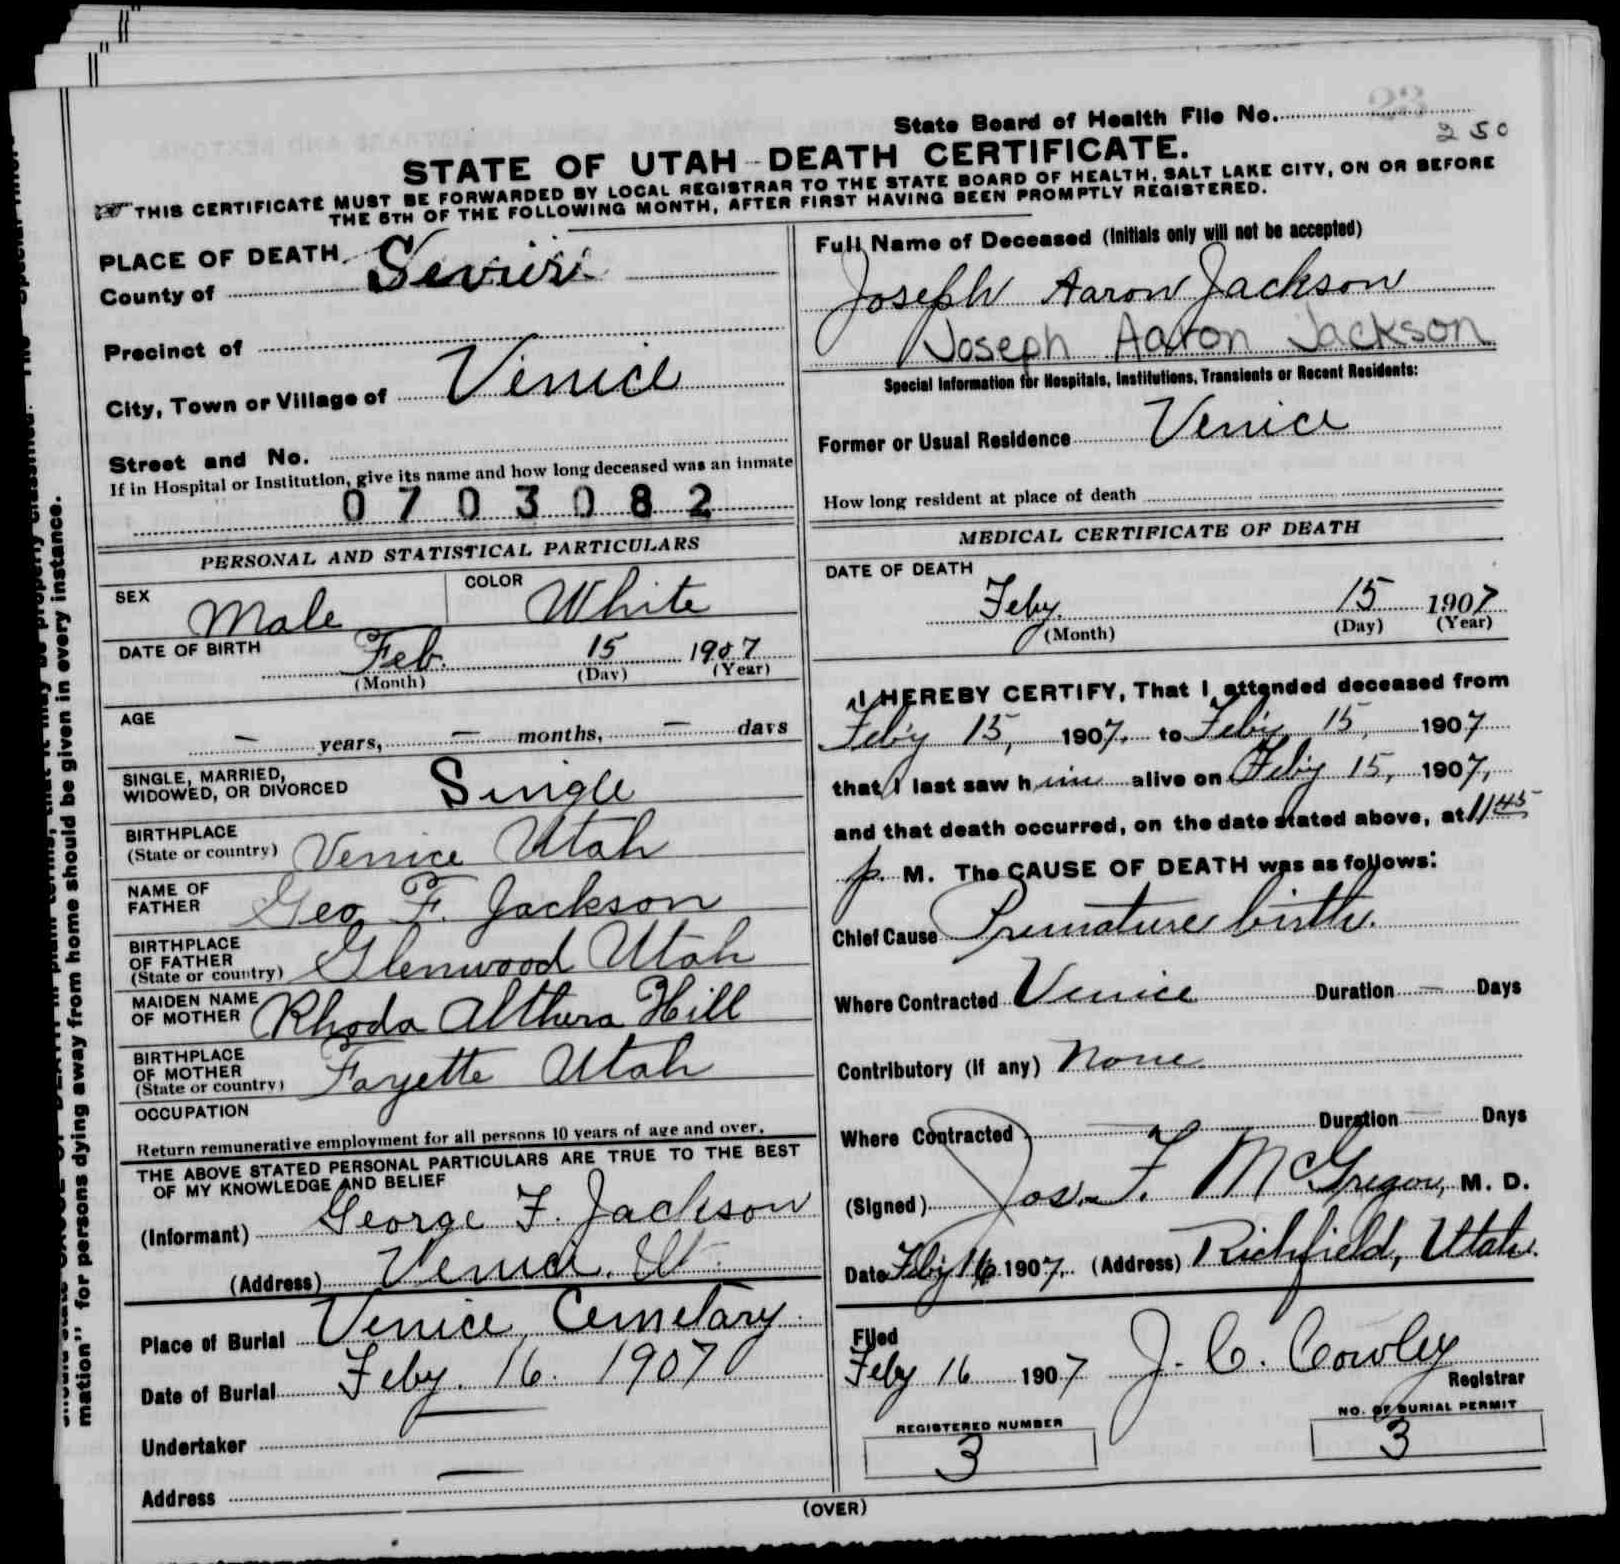 State Board of Health File No.
23
250
STATE OF UTAH--DEATH CERTIFICATE.
THIS CERTIFICATE MUST BE FORWARDED BY LOCAL REGISTRAR TO THE STATE BOARD OF HEALTH, SALT LAKE CITY, ON OR BEFORE
THE 5TH OF THE FOLLOWING MONTH, AFTER FIRST HAVING BEEN PROMPTLY REGISTERED.
PLACE OF DEATH
County of Sevier
Precinct of
City, Town or Village of Venice
Street and No.
If in Hospital or Institution, give its name and how long deceased was an inmate
0703082
PERSONAL AND STATISTICAL PARTICULARS
SEX Male COLOR White
DATE OF BIRTH Feb. 15 1907
(Month) (Day) (Year)
AGE
— years, — months, — days
SINGLE, MARRIED,
WIDOWED, OR DIVORCED Single
BIRTHPLACE
(State or country) Venice Utah
NAME OF
FATHER Geo F. Jackson
BIRTHPLACE
OF FATHER
(State or country) Glenwood Utah
MAIDEN NAME
OF MOTHER Rhoda Althera Hill
BIRTHPLACE
OF MOTHER
(State or country) Fayette Utah
OCCUPATION
Return remunerative employment for all persons 10 years of age and over.
THE ABOVE STATED PERSONAL PARTICULARS ARE TRUE TO THE BEST
OF MY KNOWLEDGE AND BELIEF
(Informant) George F. Jackson
(Address) Venice, Ut.
Place of Burial Venice Cemetary
Date of Burial Feby. 16. 1907
Undertaker —
Address —
Full Name of Deceased (Initials only will not be accepted)
Joseph Aaron Jackson
Joseph Aaron Jackson
Special Information for Hospitals, Institutions, Transients or Recent Residents:
Former or Usual Residence Venice
How long resident at place of death
MEDICAL CERTIFICATE OF DEATH
DATE OF DEATH
Feby. 15 1907
(Month) (Day) (Year)
I HEREBY CERTIFY, That I attended deceased from
Feb'y 15, 1907, to Feb'y 15, 1907
that I last saw him alive on Feb'y 15, 1907,
and that death occurred, on the date stated above, at 11 45
p. M. The CAUSE OF DEATH was as follows:
Chief Cause Premature birth.
Where Contracted Venice Duration — Days
Contributory (if any) None
Where Contracted Duration — Days
(Signed) Jos. F. McGregor, M. D.
Date Feb'y 16 1907. (Address) Richfield, Utah.
Filed
Feby 16 1907 J. C. Cowley
Registrar
REGISTERED NUMBER
3
NO. OF BURIAL PERMIT
3
(OVER)
mation" for persons dying away from home should be given in every instance.